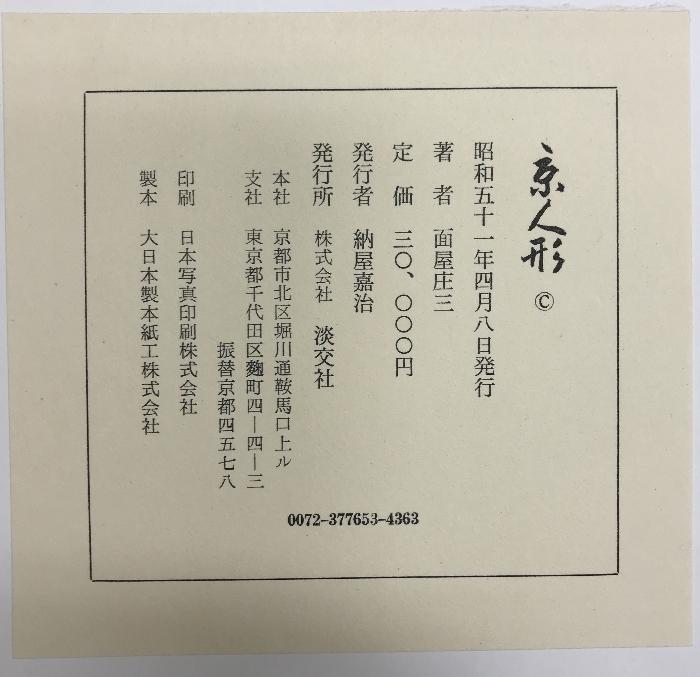 京人形 ©
昭和五十一年四月八日発行
著者 面屋庄三
定価 三〇、〇〇〇円
発行者 納屋嘉治
発行所 株式会社 淡交社
本社 京都市北区堀川通鞍馬口上ル
支社 東京都千代田区麹町四ー四ー三
振替京都四五七八
印刷 日本写真印刷株式会社
製本 大日本製本紙工株式会社
0072-377653-4363